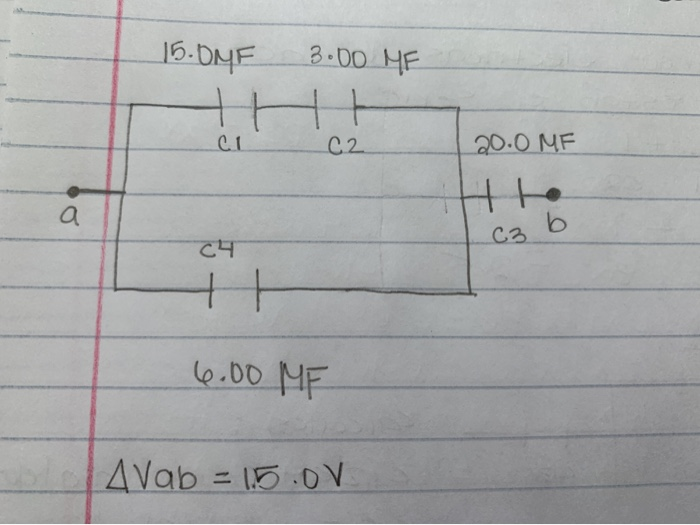 15.0MF 3.00 MF
C1 C2
20.0 MF
a
C3 b
C4
6.00 MF
ΔVab = 15.0V